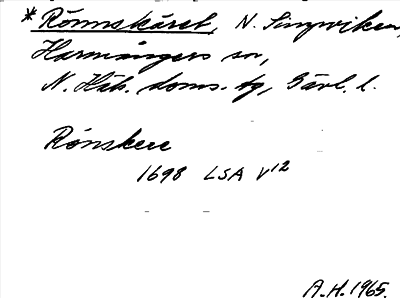 * Rönnskäret, N. Lingviken,
Harmångers sn,
N. Häls. doms. tg, Gävl. l.
Rönskere
1698 LSA V12
A.H. 1965.